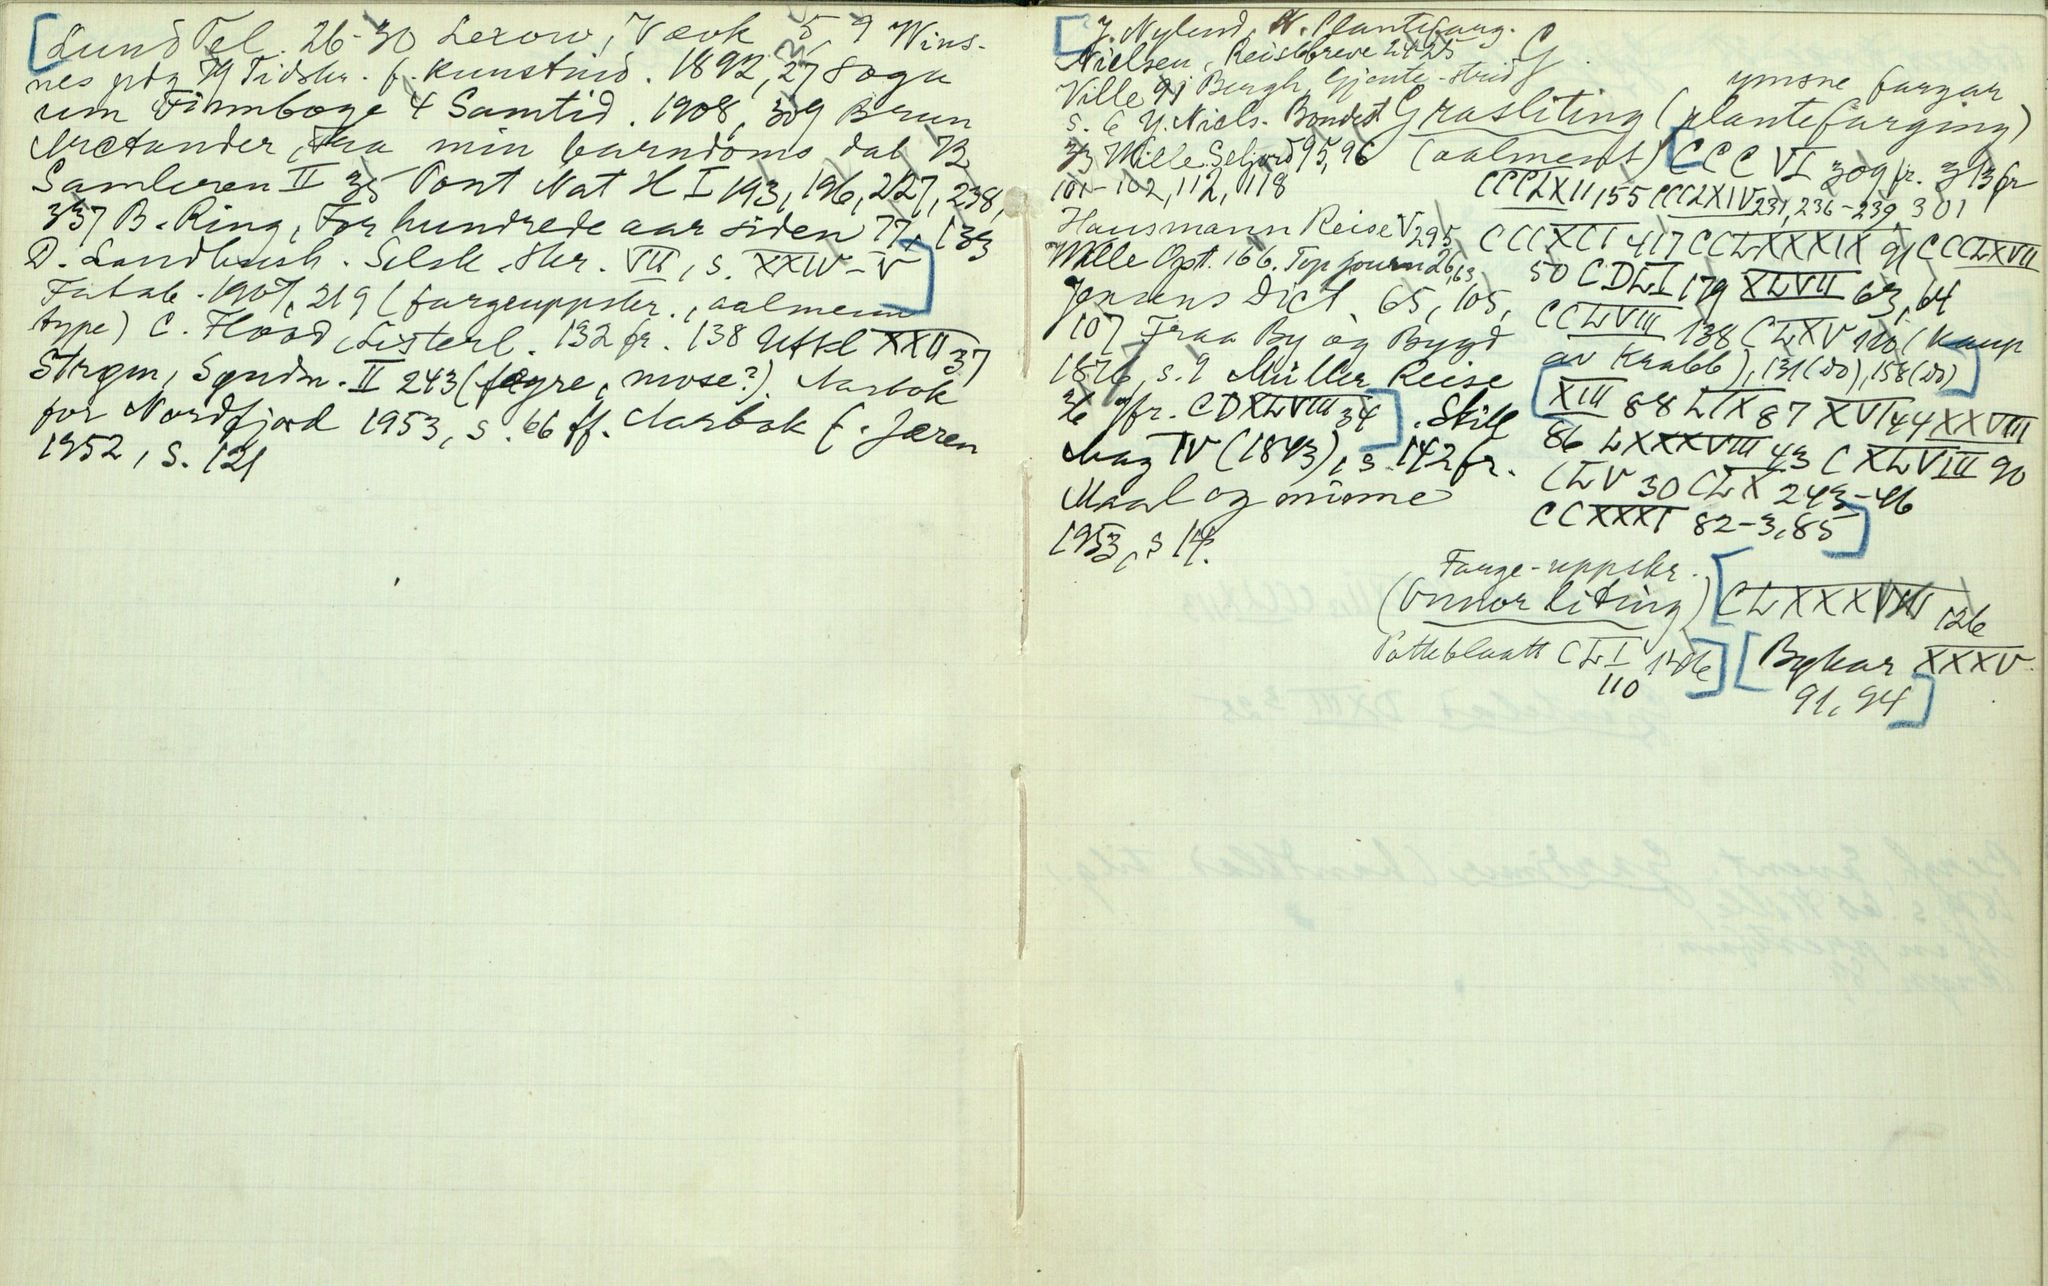 [Lund Tel. 26-30 Lexow, Vævk 5, 9 Wins-
nes pdg 79 Tidskr. f. kunstind. 1892, 27 Soga
um Finnboge 4 Samtid. 1908, 309 Brun
Arctander, Fra min barndoms dal 12
Samleren II 35 Pont Nat H I 193, 196, 227, 238,
337 B. Ring, For hundrede aar siden 77, 133
D. Landhush. Selsk. Skr. VII, s. XXIV-V]
Fatab. 1907, 219 (fargeuppskr., aalmenn
type) C. Flood, Listerl. 132 fr. 138 Utkl XXII 37
Strøm, Søndm. II 243 (fægre, mose?). Aarbok
for Nordfjord 1953, s. 66 ff. Aarbok f. Jæren
1952, s. 121
[J. Nylund, N. Plantefarg.
Nielsen, Reisebreve 24 25
G
Ville 91 Bergh, Gjente-strid
s. 6 Y. Niels. Bondest
33 Wille Seljord 95, 96
101-102, 112, 118
Hausmann Reise V 295
Wille Opt. 166. Top journ 26, 63
Jensens Dict. 65, 105,
107 Fraa By og Bygd
1876, s. 2 Müller Reise
36 jfr. CDXLVIII 34]. Skill
Mag IV (1843), s. 142 fr.
Maal og minne
1953, s 14.
ymsne fargar
Grasliting (plantefarging)
(aalment) [CCC VI 309 fr. 313 fr
CCCLXII, 155 CCCLXIV 231, 236-239 301
CCCXCI 417 CCLXXXIX 91 CCCLXVII
50 CDLI 179 XLVII 63, 64
CCLVIII 138 CLXV 120 (Kaup
av Krabb), 131 (do), 158 (do)]
[XIII 88 LIX 87 XVI 44 XXVIII
86 LXXXVIII 43 CXLVIII 90
CLV 30 CLX 243-46
CCXXXI 82-3, 85]
Farge-uppskr.
(Onnor liting) [CLXXXVIII 126
Potteblaatt CLI 146] [Bykar XXXV
110
91, 94]